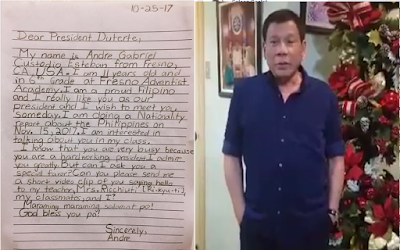 10-25-17
Dear President Duterte,
My name is Andre Gabriel
Custodio Esteban from Fresno,
CA, USA. I am 11 years old and
in 6th Grade at Fresno Adventist
Academy. I am a proud Filipino
and I really like you as our
president and I wish to meet you
someday. I am doing a Nationality
report about the Philippines on
Nov. 15, 2017. I am interested in
talking about you in my class.
I know that you are very busy because
you are a hardworking president. I admire
you greatly. But can I ask you a
special favor? Can you please send me
a short video clip of you saying hello
to my teacher, Mrs. Ricchiuti, [Ri-kyu-ti],
my classmates, and I?
Maraming maraming salamat po!
God bless you po!
Sincerely,
Andre